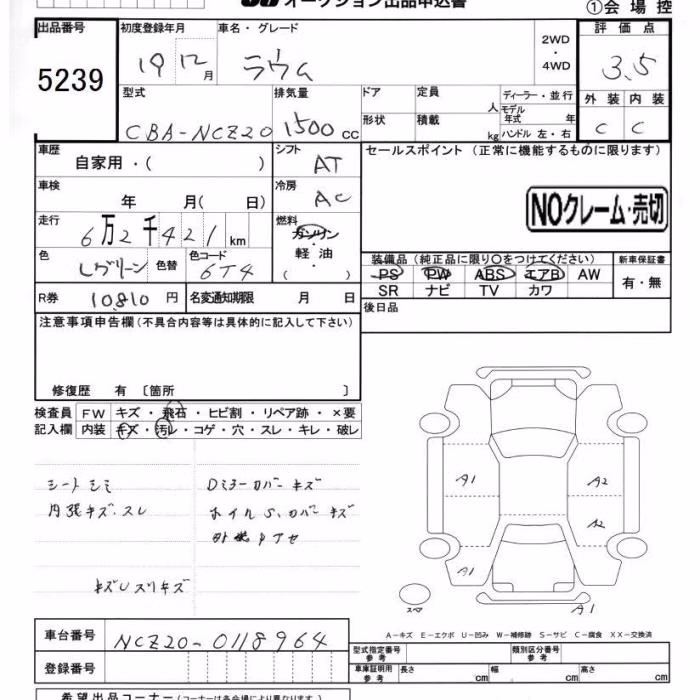 オークション出品申込書
①会場控
出品番号
5239
初度登録年月
19 12月
車名・グレード
ラウム
2WD
・
4WD
評価点
3.5
型式
CBA-NCZ20
排気量
1500 cc
ドア
形状
定員 人
積載 kg
ディーラー・並行
モデル年式 年
ハンドル 左・右
外装 内装
C C
車歴
自家用・( )
シフト
AT
セールスポイント (正常に機能するものに限ります)
車検
年 月( 日)
冷房
AC
NOクレーム・売切
走行
6万2千421km
燃料
ガソリン
軽油
( )
色
Lグリーン
色替
色コード
6T4
装備品(純正品に限り○をつけてください)
PS PW ABS エアB AW
SR ナビ TV カワ
新車保証書
有・無
R券
10810円
名変通知期限 月 日
後日品
注意事項申告欄(不具合内容等は具体的に記入して下さい)
修復歴 有 〔箇所 〕
検査員
記入欄
FW キズ・飛石・ヒビ割・リペア跡・×要
内装 キズ・汚レ・コゲ・穴・スレ・キレ・破レ
シートシミ
内張キズ.スレ
Dミラーカバーキズ
ホイルS.カバーキズ
キズUスリキズ
A1
A2
A2
A1
A1
スペア
A-キズ E-エクボ U-凹み W-補修跡 S-サビ C-腐食 XX-交換済
車台番号
NCZ20-0118964
登録番号
型式指定番号
参考
類別区分番号
参考
車庫証明用
参考
長さ cm
幅 cm
高さ cm
希望出品コーナー